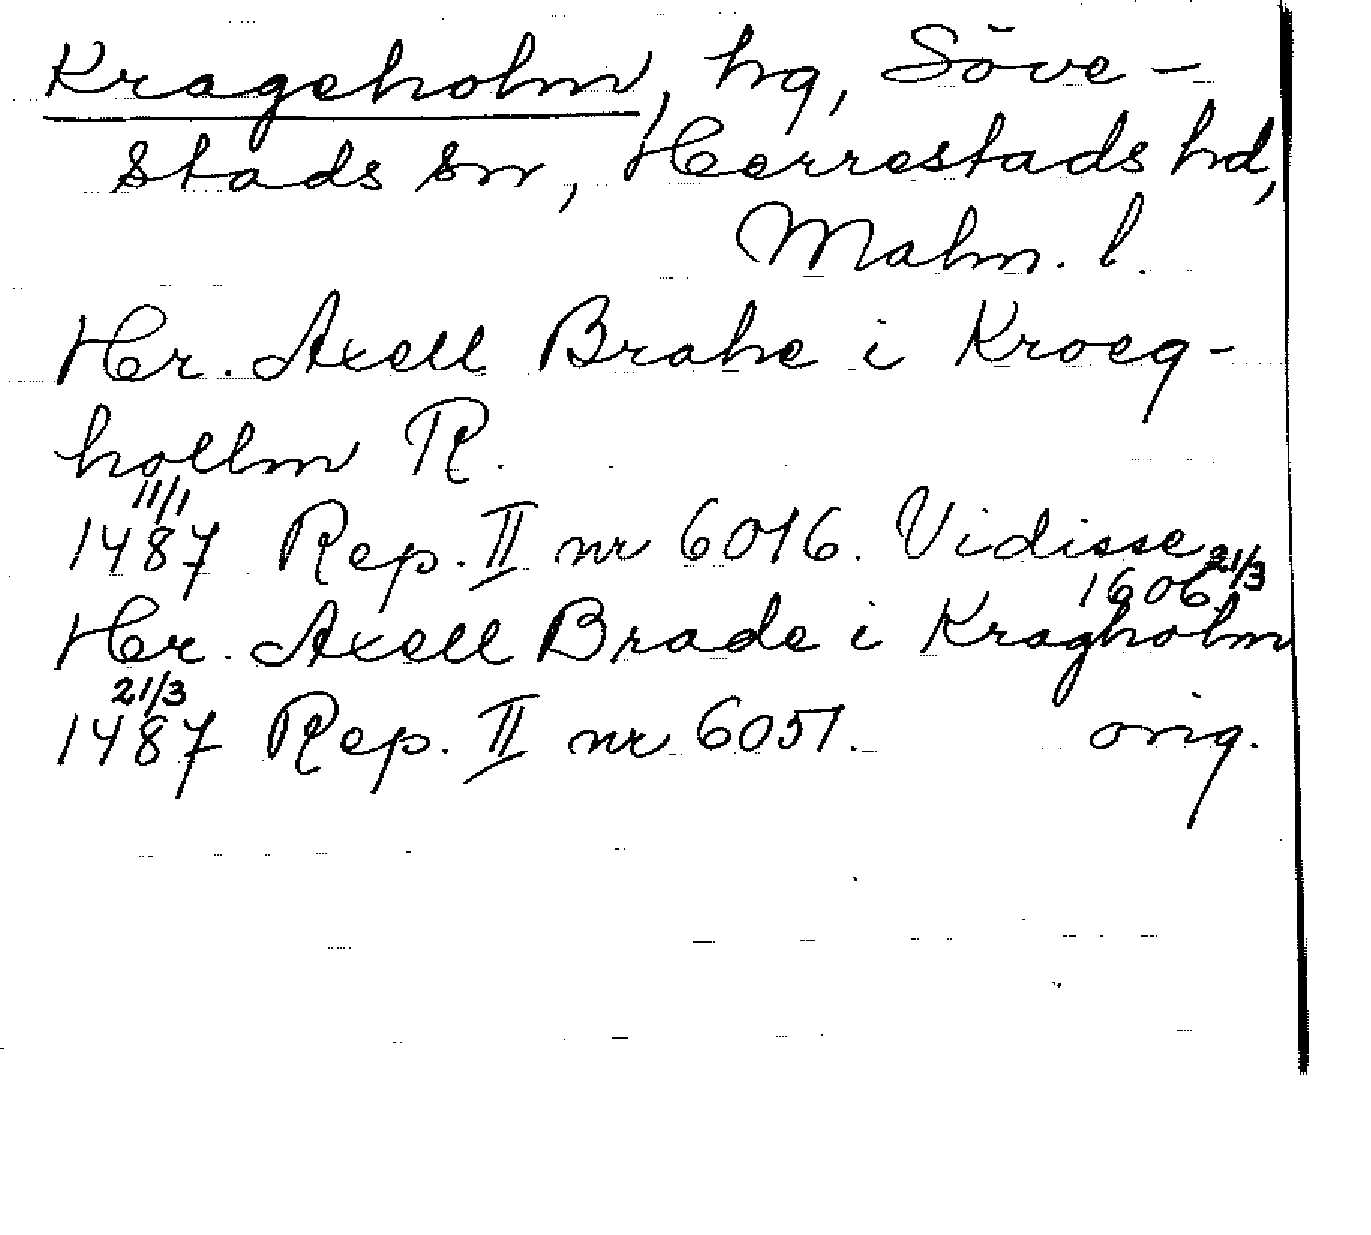 Krageholm, hg, Söve-
stads sn, Herrestads hd,
Malm. l.
Hr. Axell Brahe i Kroeg-
hollm R.
11/1
1487 Rep. II nr 6016. Vidisse
1606 21/3
Hr. Axell Brade i Kragholm
21/3
1487 Rep. II nr 6051. orig.